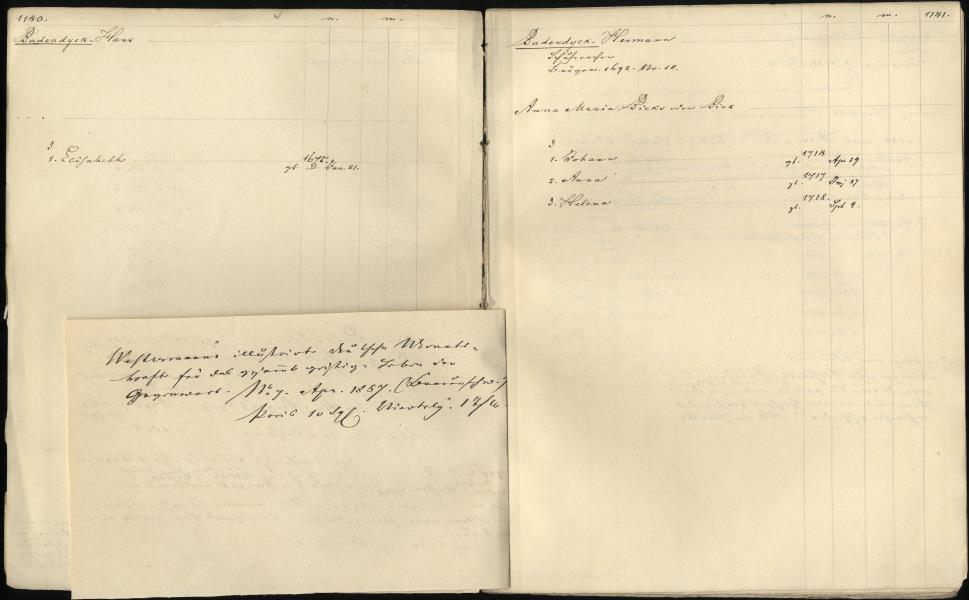 1140. n. m.
Badendyck. Hans
1. Elisabeth gt. 1675. Jan. 21.
Westermanns illustrirte deutsche Monats-
hefte für das gesammte geistige Leben der
Gegenwart. No 7. Apr. 1857. (Braunschw.)
Preis 10 Sgr.
n. m. 1141.
Badendyck. Hermann
Schuhmacher
Bürger. 1692. No. 10.
Anna Maria Bicks oder Bick
1. Johann gt. 1714 Apr 29
2. Anna gt. 1717 27
3. Helena gt. 1718. Spt 9.